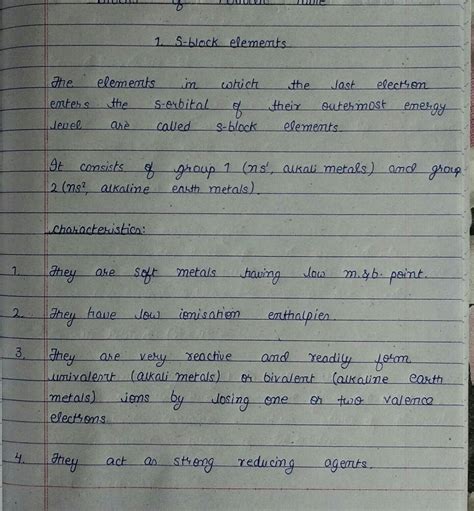 of Periodic Table
1. S-block elements
The elements in which the last electron
enters the s-orbital of their outermost energy
level are called s-block elements.
It consists of group 1 (ns¹, alkali metals) and group
2 (ns², alkaline earth metals).
characteristics:
1. They are soft metals having low m.&b. point.
2. They have low ionisation enthalpies.
3. They are very reactive and readily form
univalent (alkali metals) or bivalent (alkaline earth
metals) ions by losing one or two valence
electrons.
4. They act as strong reducing agents.